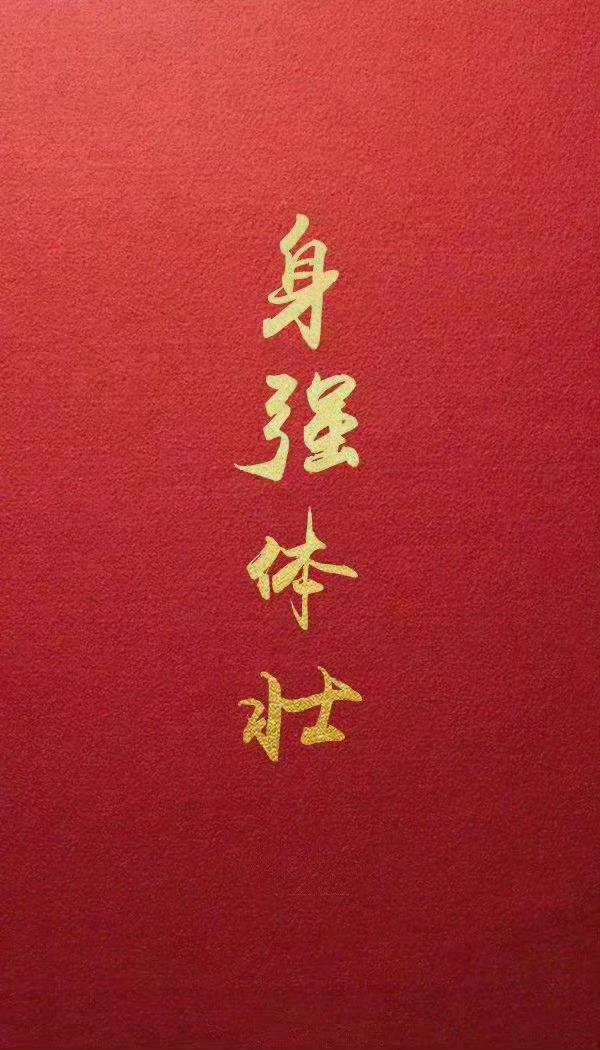 身强体壮